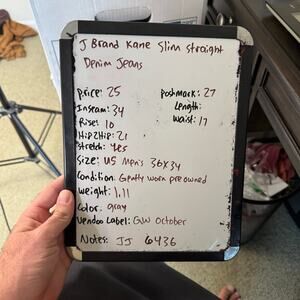 J Brand Kane Slim Straight
Denim Jeans
Price: 25
Poshmark: 27
Inseam: 34
Length:
Rise: 10
Waist: 17
Hip2Hip: 21
Stretch: Yes
Size: US Men's 36x34
Condition: Gently worn preowned
Weight: 1.11
Color: gray
Vendoo Label: GW October
Notes: JJ 6436